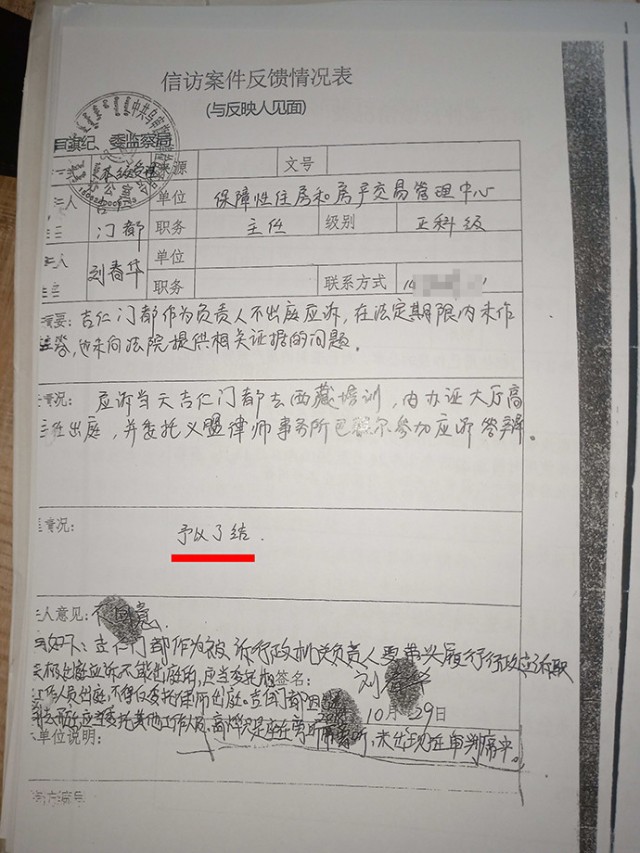 信访案件反馈情况表
(与反映人见面)
旗纪、委监察局
来源
文号
吉仁
单位
保障性住房和房产交易管理中心
门都
职务
主任
级别
正科级
人
单位
刘春华
职务
联系方式
要：吉仁门都作为负责人不出庭应诉，在法定期限内未作
答，也未向法院提供相关证据的问题。
情况：应诉当天吉仁门都去西藏培训，由办证大厅高
出庭，并委托义盟律师事务所巴 尔参加应诉答辩。
情况：
予以了结.
人意见：不同意
如下：吉仁门都作为被诉行政机关负责人要带头履行行政应诉职
出庭应诉不能出庭的，应当委托 签名：刘春华
工作人员出庭，不得仅委托律师出庭。吉仁门都因
应当委托其他工作人员。
10月29日
未出现在审判席中。
单位说明：